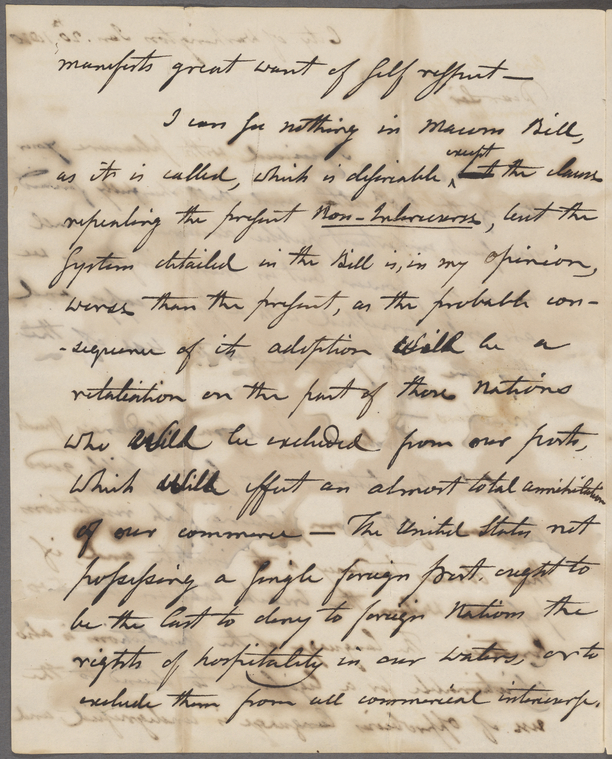 manifests great want of self respect—
I can see nothing in Macons Bill,
as its is called, which is desirable, except the clause
repealing the present Non-Intercourse, but the
System detailed in the Bill is, in my opinion,
worse than the present, as the probable con-
-sequence of its adoption will be a
retaliation on the part of those Nations
who will be excluded from our ports,
which will effect an almost total annihilation
of our commerce — The United States not
possessing a single foreign port, ought to
be the last to deny to foreign Nations the
rights of hospitality in our waters, or to
exclude them from all commercial intercourse.